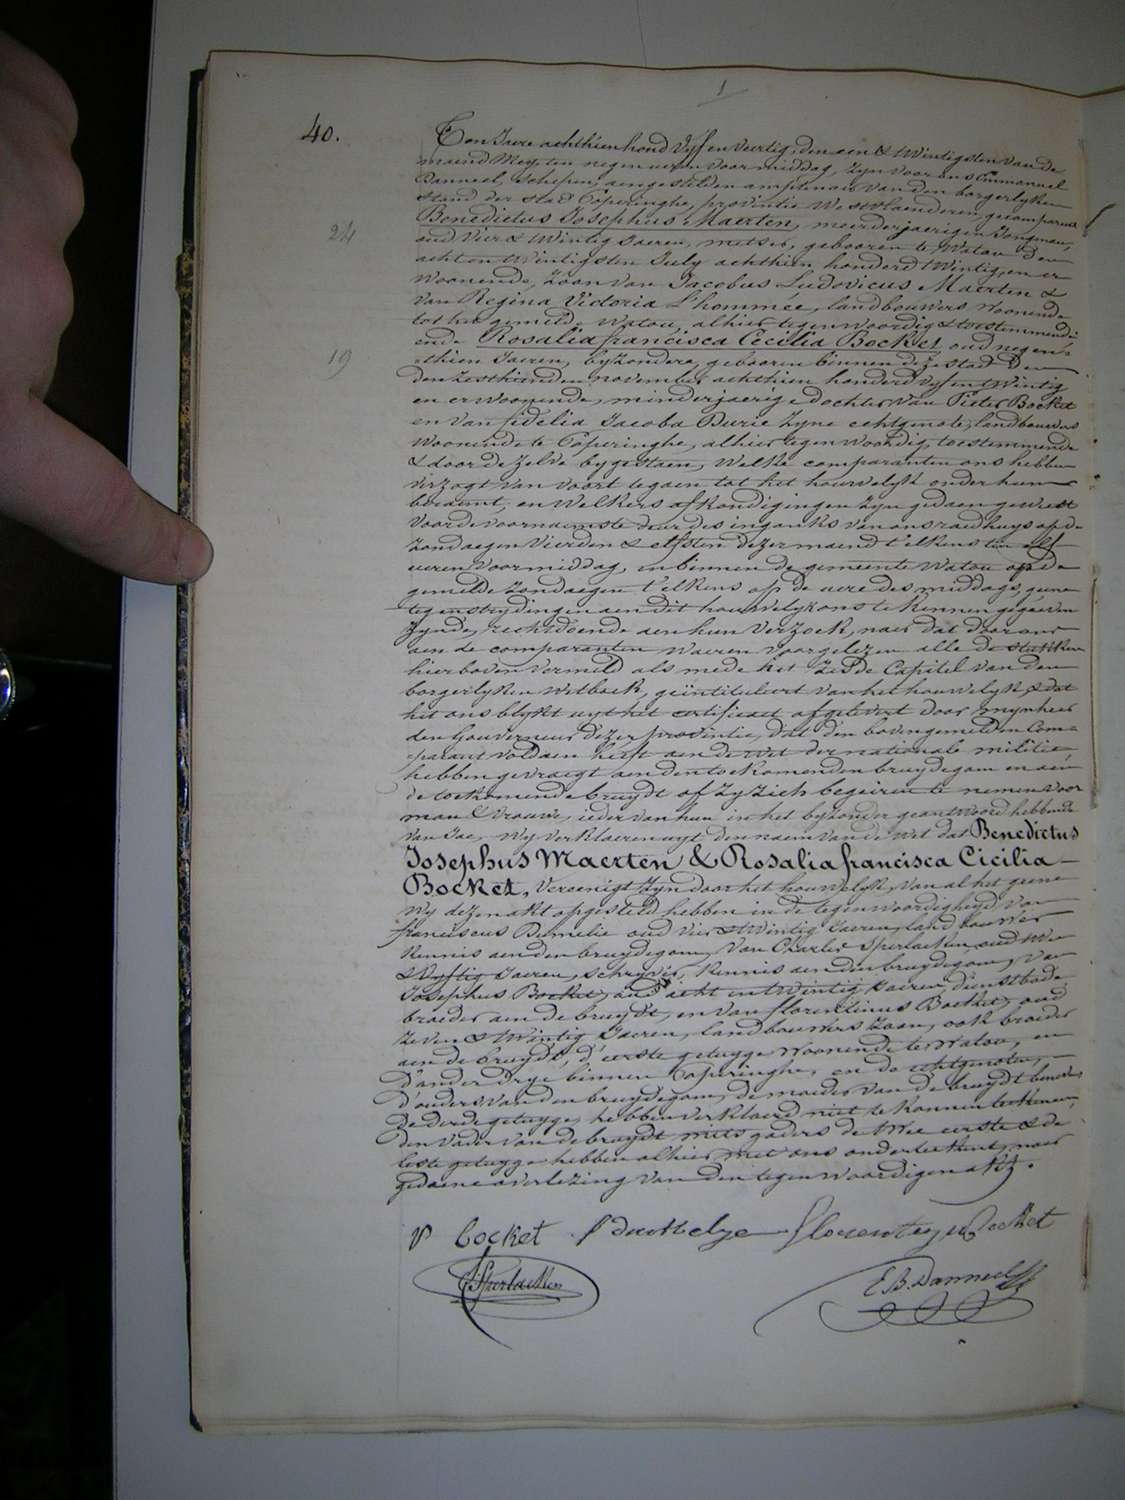 1
40.
Ten Jaere achthien hond vyf en veertig, den een & twintigsten van de
maend Mey, ten negen uren voormiddag, zyn voor ons Emmanuel
Banneel, schepen, aengestelden amptenaer van den borgerlyken
stand der stad Poperinghe, provintie Westvlaenderen, gecompareerd
Benedictus Josephus Maerten, meerderjaerigen jongman,
24
oud vier & twintig Jaeren, metser, gebooren te Watou den
acht en twintigsten July achthien honderd twintig, en er
woonende, zoon van Jacobus Ludovicus Maerten &
van Regina Victoria L'hommée, landbouwers woonende
tot het gemeld Watou, alhier tegenwoordig & toestemmende
ende Rosalia francisca Cecilia Bocket, oud negen-
19
thien Jaeren, byzondere, gebooren binnen deze stad den
den zesthienden november achthien honderd vyf en twintig
en er woonende, minderjaerige dochter van Pieter Bocket
en van fidelia Jacoba Burie zyne echtgenote, landbouwers
woonende te Poperinghe, alhier tegenwoordig, toestemmende
& door de zelve bygestaen, welke comparanten ons hebben
verzogt van voort te gaen tot het houwelyk onder hun
beraemt, en welkers afkondigingen zyn gedaen geweest
voor de voornaemste deur des ingangs van ons raedhuys op de
zondaegen vierden & elfsten dezer maend t'elkens ten elf
ueren voormiddag, en binnen de gemeente Watou op de
gemelde zondaegen t'elkens op de uere des middags, geene
tegenstrydingen aen dit houwelyk ons te kennen gegeeven
zynde, rechtdoende aen hun verzoek, naer dat door ons
aen de comparanten waeren voorgelezen alle de stukken
hierboven vermeld als mede het zesde Capitel van den
borgerlyken wetboek, geïntituleert van het houwelyk, & dat
het ons blykt uyt het certificaet afgelevert door mynheer
den Gouverneur dezer provintie, dat den bovengemelden Com-
parant voldaen heeft aen de wet der nationale militie,
hebben gevraegt aen den toekomenden bruydegom en aen
de toekomende bruydt of zy zich begeiren te nemen voor
man & vrouwe, ieder van hun in het byzonder geantwoord hebbende
van Jae, wy verklaeren uyt den naem van de wet dat Benedictus
Josephus Maerten & Rosalia francisca Cicilia
Bocket, vereenigt zyn door het houwelyk, van al het geene
wy dezen akt opgesteld hebben in de tegenwoordigheyd van
franciscus Dumelie oud vier & twintig Jaeren, landbouwer
kennis aen den bruydegom, van Charles Sperlaeken oud
& vyftig Jaeren, schryver, kennis aen den bruydegom, van
Josephus Bocket, oud acht en twintig Jaeren, dienstbode
broeder aen de bruydt, en van florentinus Bocket, oud
zeven & twintig Jaeren, landbouwers zoon, ook broeder
aen de bruydt, d'eerste getuyge woonende te Watou, en
d'ander drye binnen Poperinghe, en de echtgenoten,
d'ouders van den bruydegom, de moeder van de bruydt benevens
de derde getuyge, hebben verklaerd niet te konnen teekenen,
den vader van de bruydt mitsgaders de twee eerste & de
leste getuyge hebben alhier met ons onderteekent, naer
gedaene overlezing van den tegenwoordigen akt.
P Bocket Florentinus Bocket
C Sperlaeken
E B. Banneel